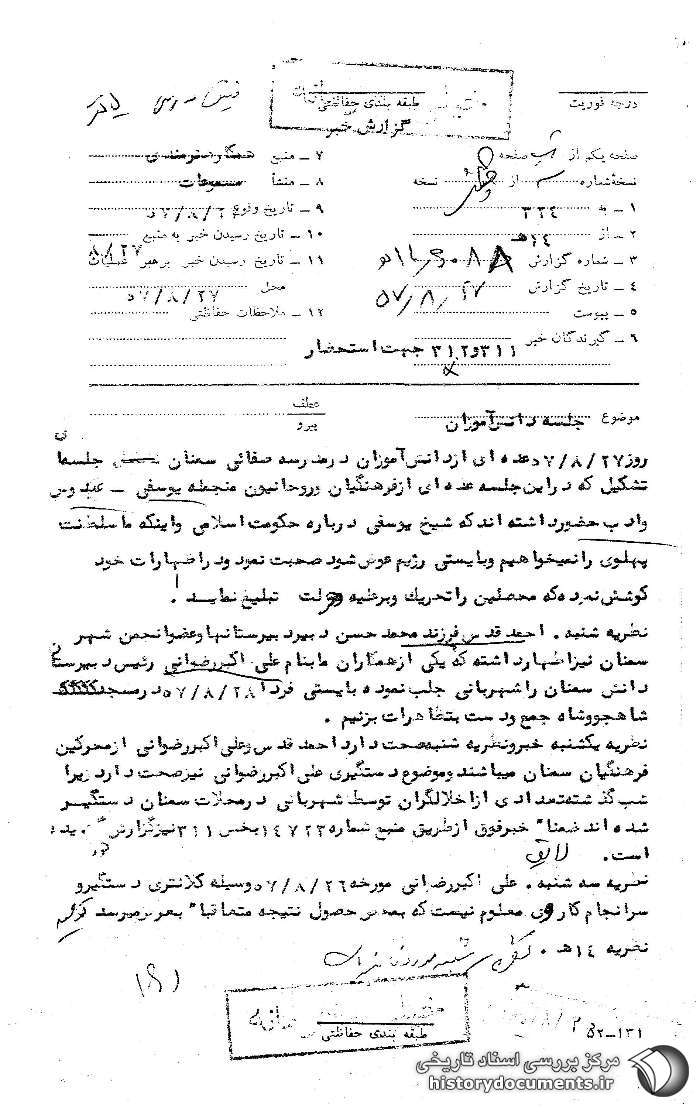 درجه فوریت
طبقه بندی حفاظتی
گزارش خبر
صفحه یکم از صفحه
نسخه شماره از نسخه
۱ ـ به ۳۳۴
۲ ـ از ۱۴هـ
۳ ـ شماره گزارش
۴ ـ تاریخ گزارش ۵۷/۸/۲۷
۵ ـ پیوست
۶ ـ گیرندگان خبر ۳۱۱و۳۱۲ جهت استحضار
۷ ـ منبع همکار د رمندی
۸ ـ منشأ مسموعات
۹ ـ تاریخ وقوع
۱۰ ـ تاریخ رسیدن خبر به منبع
۱۱ ـ تاریخ رسیدن خبر برهبر عملیات ۸/۲۷
محل ۵۷/۸/۲۷
۱۲ ـ ملاحظات حفاظتی
موضوع جلسه دانش آموزان
عطف
پیرو
روز ۵۷/۸/۲۷ عده ای ازدانش آموزان درمدرسه صفائی سمنان جلسه‌ا
تشکیل که دراین جلسه عده ای ازفرهنگیان وروحانیون منجطه یوسفی ـ عبدوس
وادب حضورداشته اندکه شیخ یوسفی درباره حکومت اسلامی واینکه ماسلطنت
پهلوی رانمیخواهیم وبایستی رژیم عوض شود صحبت نمود ودراظهارات خود
کوشش نموده که محصلین راتحریک وبرعلیه دولت تبلیغ نمایند .
نظریه شنبه . احمد قدس فرزند محمد حسن دبیردبیرستانها وعضوانجمن شهر
سمنان نیزاظهارداشته که یکی ازهمکاران مابنام علی اکبررضوانی رئیس دبیرستان
دانش سمنان راشهربانی جلب نموده بایستی فردا ۵۷/۸/۲۸ درمسجد
شاهجووشاه جمع ودست بتظاهرات بزنیم .
نظریه یکشنبه خبرونظریه شنبه صحت دارد احمد قدس وعلی اکبررضوانی ازمحرکین
فرهنگیان سمنان میباشند وموضوع دستگیری علی اکبررضوانی نیزصحت دارد زیرا
شب گذشته تعدادی ازاخلالگران توسط شهربانی درمحلات سمنان دستگیر
شده اند ضمنا" خبرفوق ازطریق منبع شماره ۱۴۷۲۳ بخش ۳۱۱ نیزگزارش گردیده
است .
نظریه سه شنبه . علی اکبررضوانی مورخه ۵۷/۸/۲۶ وسیله کلانتری دستگیرو
سرانجام کاروی معلوم نیست که بمحض حصول نتیجه متعاقبا" بعرض میرسد
نظریه ۱۴هـ .
طبقه بندی حفاظتی
۵۲-۱۳۱
مرکز بررسی اسناد تاریخی
historydocuments.ir